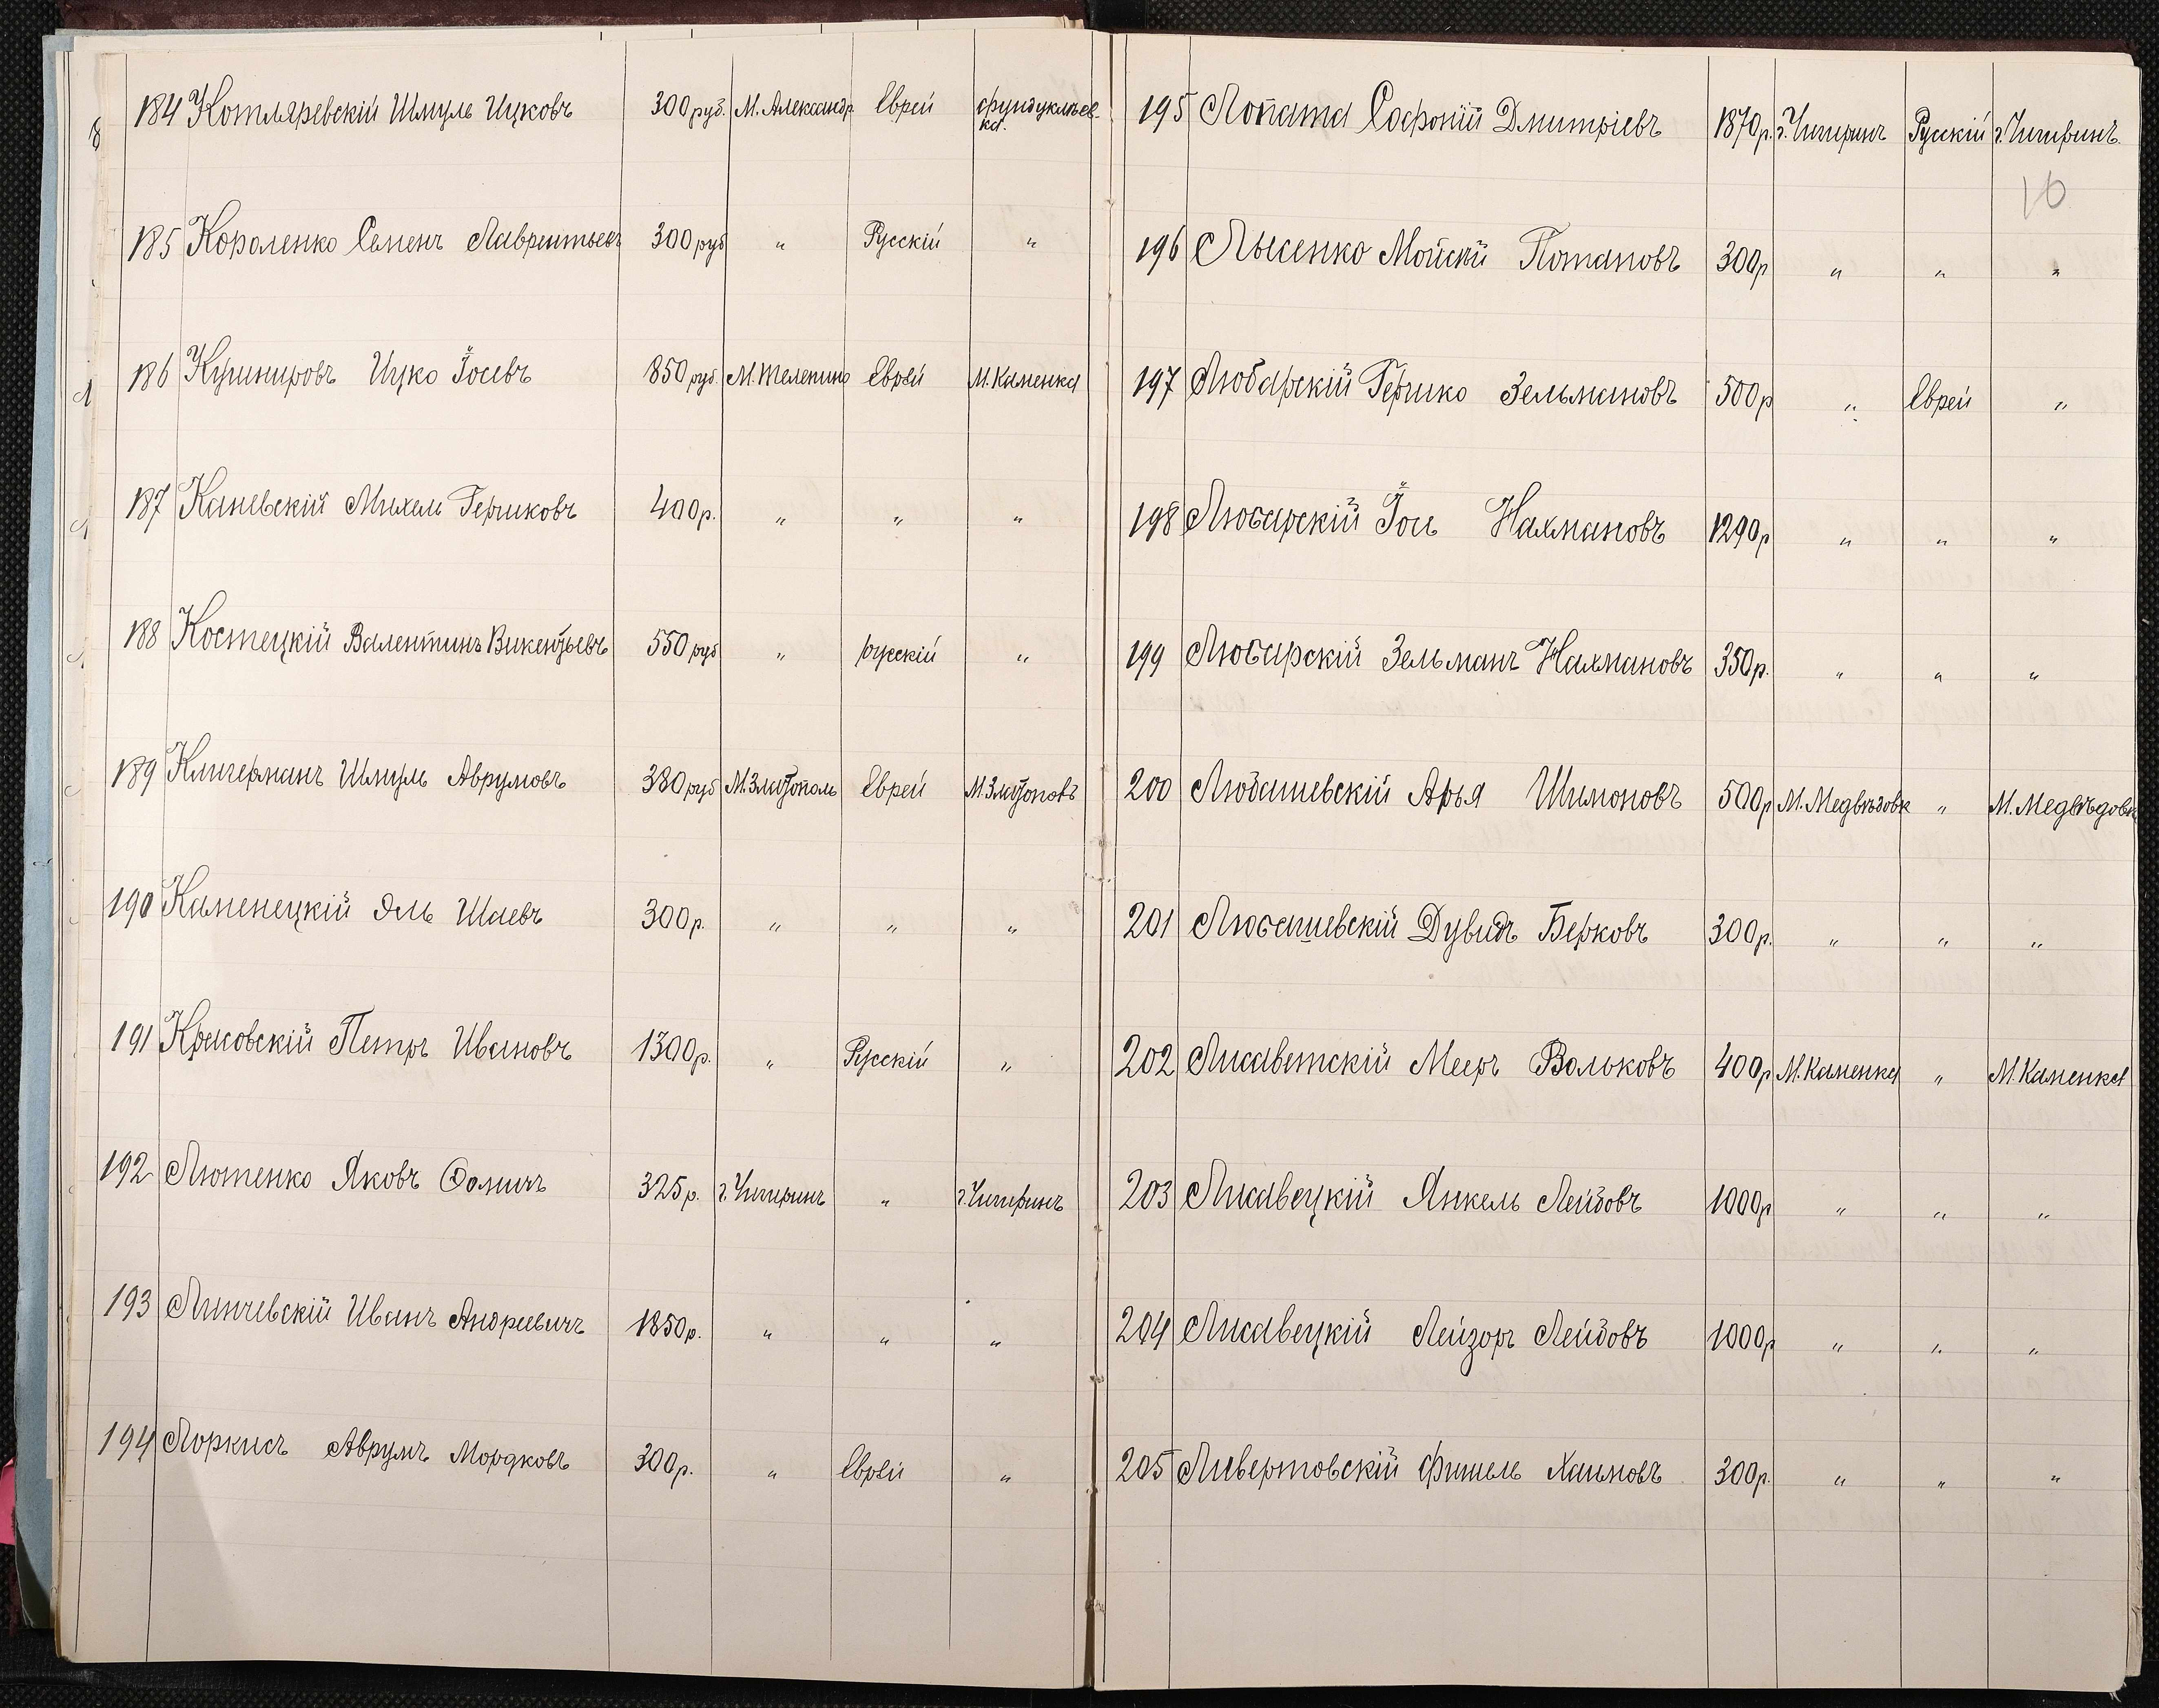 184 Котляревскій Шмуль Ицковъ 300 руб. М. Александр. Еврей Фундуклѣев-
ка.
185 Короленко Семенъ Лаврентьевъ 300 руб " Русскій "
186 Кушнировъ Ицко Іосевъ 850 руб. М. Телепино Еврей М. Каменка
187 Каневскій Михель Гершковъ 400 р. " " "
188 Костецкій Валентинъ Викентьевъ 550 руб " русскій "
189 Клигерманъ Шмуль Аврумовъ 380 руб М. Златополь Еврей М. Златополь
190 Каменецкій Эль Шаевъ 300 р. " " "
191 Краковскій Петръ Ивановъ 1300 р. " Русскій "
192 Лютенко Яковъ Фомичъ 325 р. г. Чигиринъ " г. Чигиринъ
193 Линчевскій Иванъ Андреевичъ 1850 р. " " "
194 Лоркисъ Аврумъ Мордковъ 300 р. " Еврей "
195 Лопата Софроній Дмитріевъ 1870 р. г. Чигиринъ Русскій г. Чигиринъ.
10
196 Лысенко Мойсей Потаповъ 300 р " " "
197 Любарскій Гершко Зельмановъ 500 р " Еврей "
198 Любарскій Іось Нахмановъ 1290 р " " "
199 Любарскій Зельманъ Нахмановъ 350 р. " " "
200 Любашевскій Арья Шимоновъ 500 р М. Медвѣдовк " М. Медвѣдовк
201 Любашевскій Дувидъ Берковъ 300 р. " " "
202 Лисаветскій Мееръ Вольковъ 400 р М. Каменка " М. Каменка
203 Лисавецкій Янкель Лейбовъ 1000 р " " "
204 Лисавецкій Лейзоръ Лейбовъ 1000 р " " "
205 Ливертовскій Фишель Хаимовъ 300 р. " " "